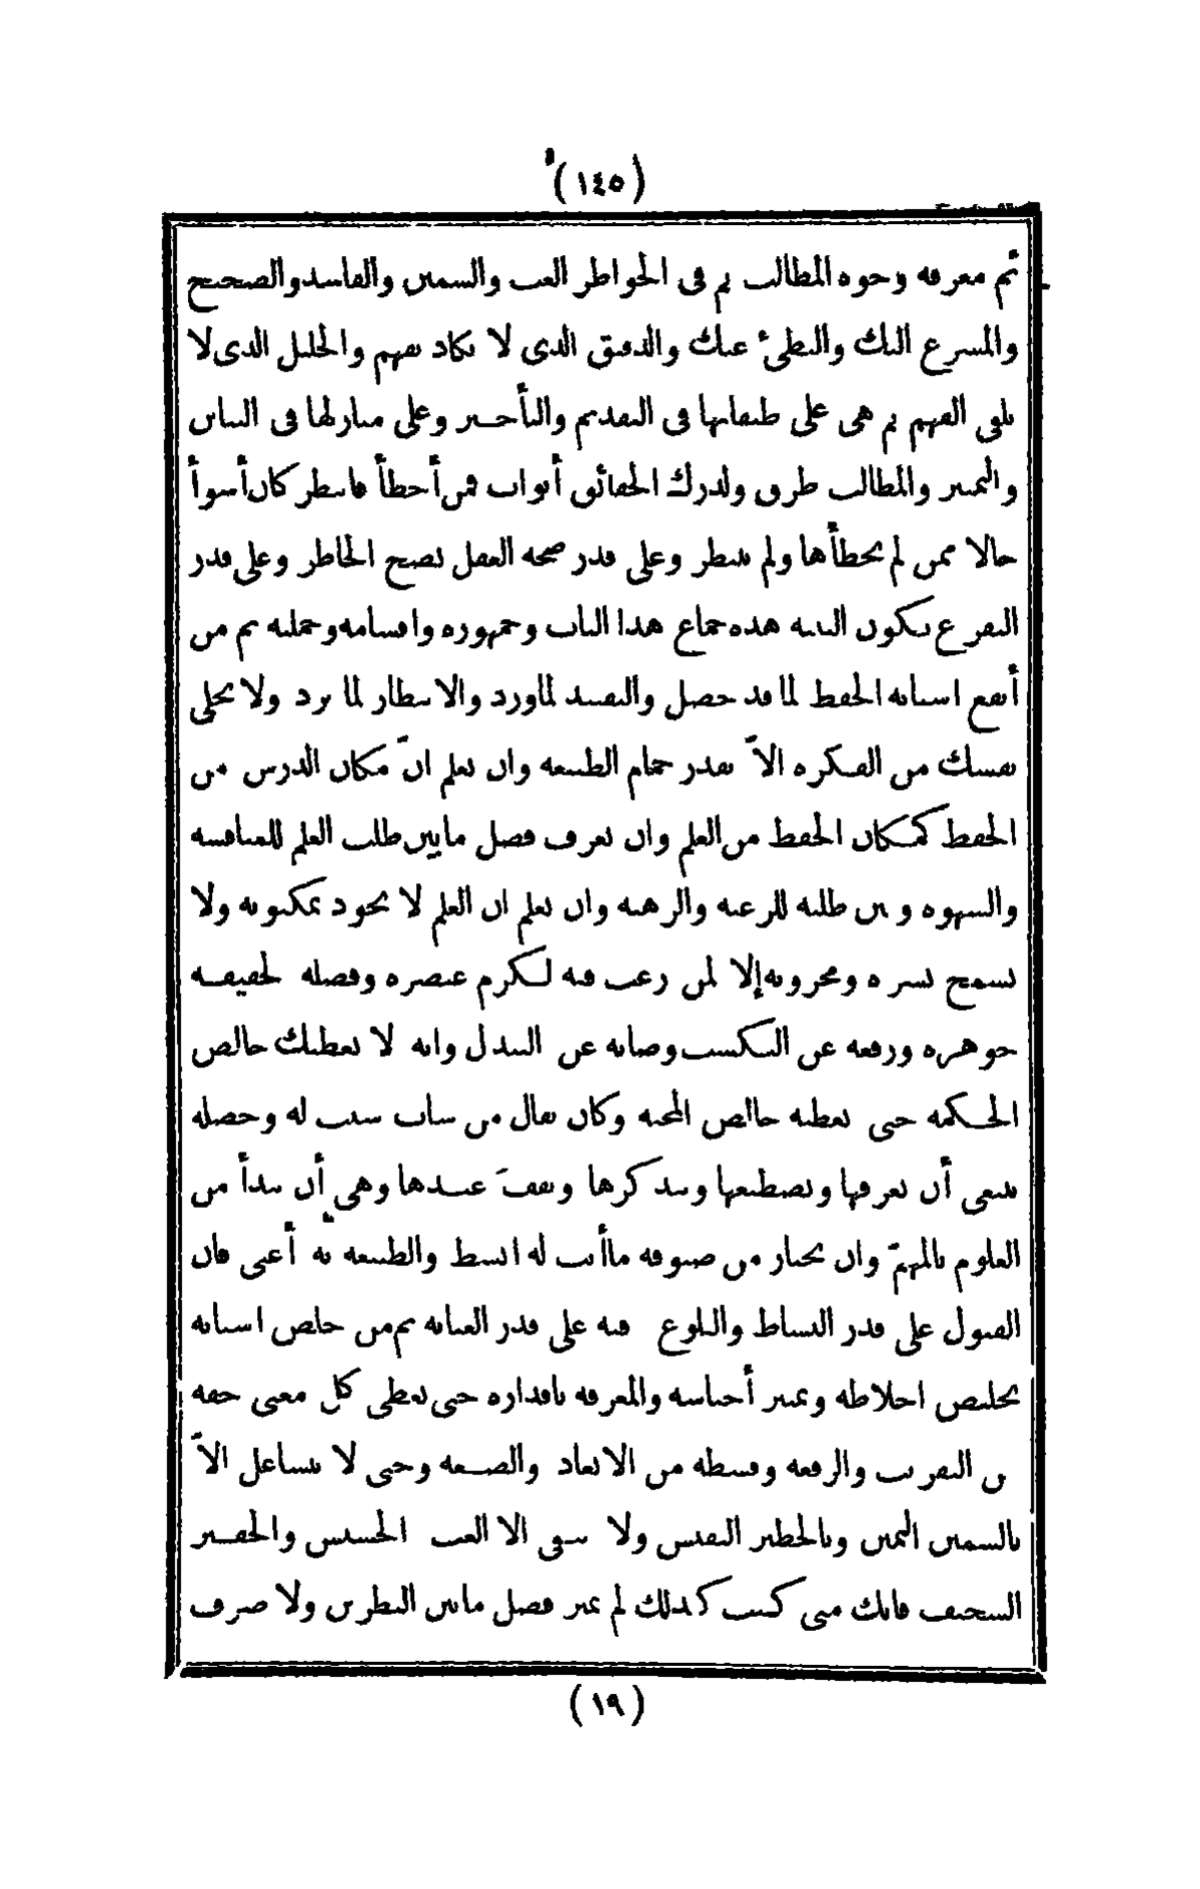 (١٤٥)
ثم معرفة وجوه المطالب ثم فى الخواطر الغث والسمين والفاسد والصحيح
والمسرع اليك والبطئ عنك والدقيق الذى لا يكاد يفهم والجليل الذى لا
يلقى الفهم ثم هى على طبقاتها فى التقديم والتأخير وعلى منازلها فى التباين
والتمييز والمطالب طرق ولدرك الحقائق أبواب فمن أخطأ فانتظر كان أسوأ
حالا ممن لم يخطأها ولم ينتظر وعلى قدر صحة العقل تصح الخاطر وعلى قدر
التفرغ يكون التنبه هذه جماع هذا الباب وجمهوره واقسامه وجملته ثم من
أنفع اسبابه الحفظ لما قد حصل والتقييد لما ورد والانتظار لما يرد ولا يخلى
نفسك من الفكرة الاّ بقدر جمام الطبيعة وان تعلم انّ مكان الدرس من
الحفظ كمكان الحفظ من العلم وان تعرف فصل ما بين طلب العلم للمنافسة
والشهوة و بين طلبه للرغبة والرهبة وان تعلم ان العلم لا يجود بمكنونه ولا
يسمح بسره ومخزونه إلا لمن رغب فيه لكرم عنصره وفضله لحقيقة
جوهره ورفعه عن التكسب وصانه عن التبذل وانه لا تعطيك خالص
الحكمة حتى تعطيه خالص المحبة وكان يقال من شاب شيب له وخصلة
ينبغى أن تعرفها وتصطنعها وتتذكرها وتقف عندها وهى أن تبدأ من
العلوم بالمهمّ وان تختار من صنوفه ما أنت له انشط والطبيعة به أعنى فان
القبول على قدر النشاط والبلوغ فيه على قدر العناية ثم من خالص اسبابه
تخليص اخلاطه وتمييز أجناسه والمعرفة باقداره حتى تعطى كل معنى حقه
من التقريب والرفعة وقسطه من الابعاد والضعة وحتى لا يتشاغل الاّ
بالسمين الثمين وبالخطير النفيس ولا تبقى الا الغث الخسيس والحقير
السخيف فانك متى كنت كذلك لم تميز فصل ما بين النظرين ولا صرف
(١٩)